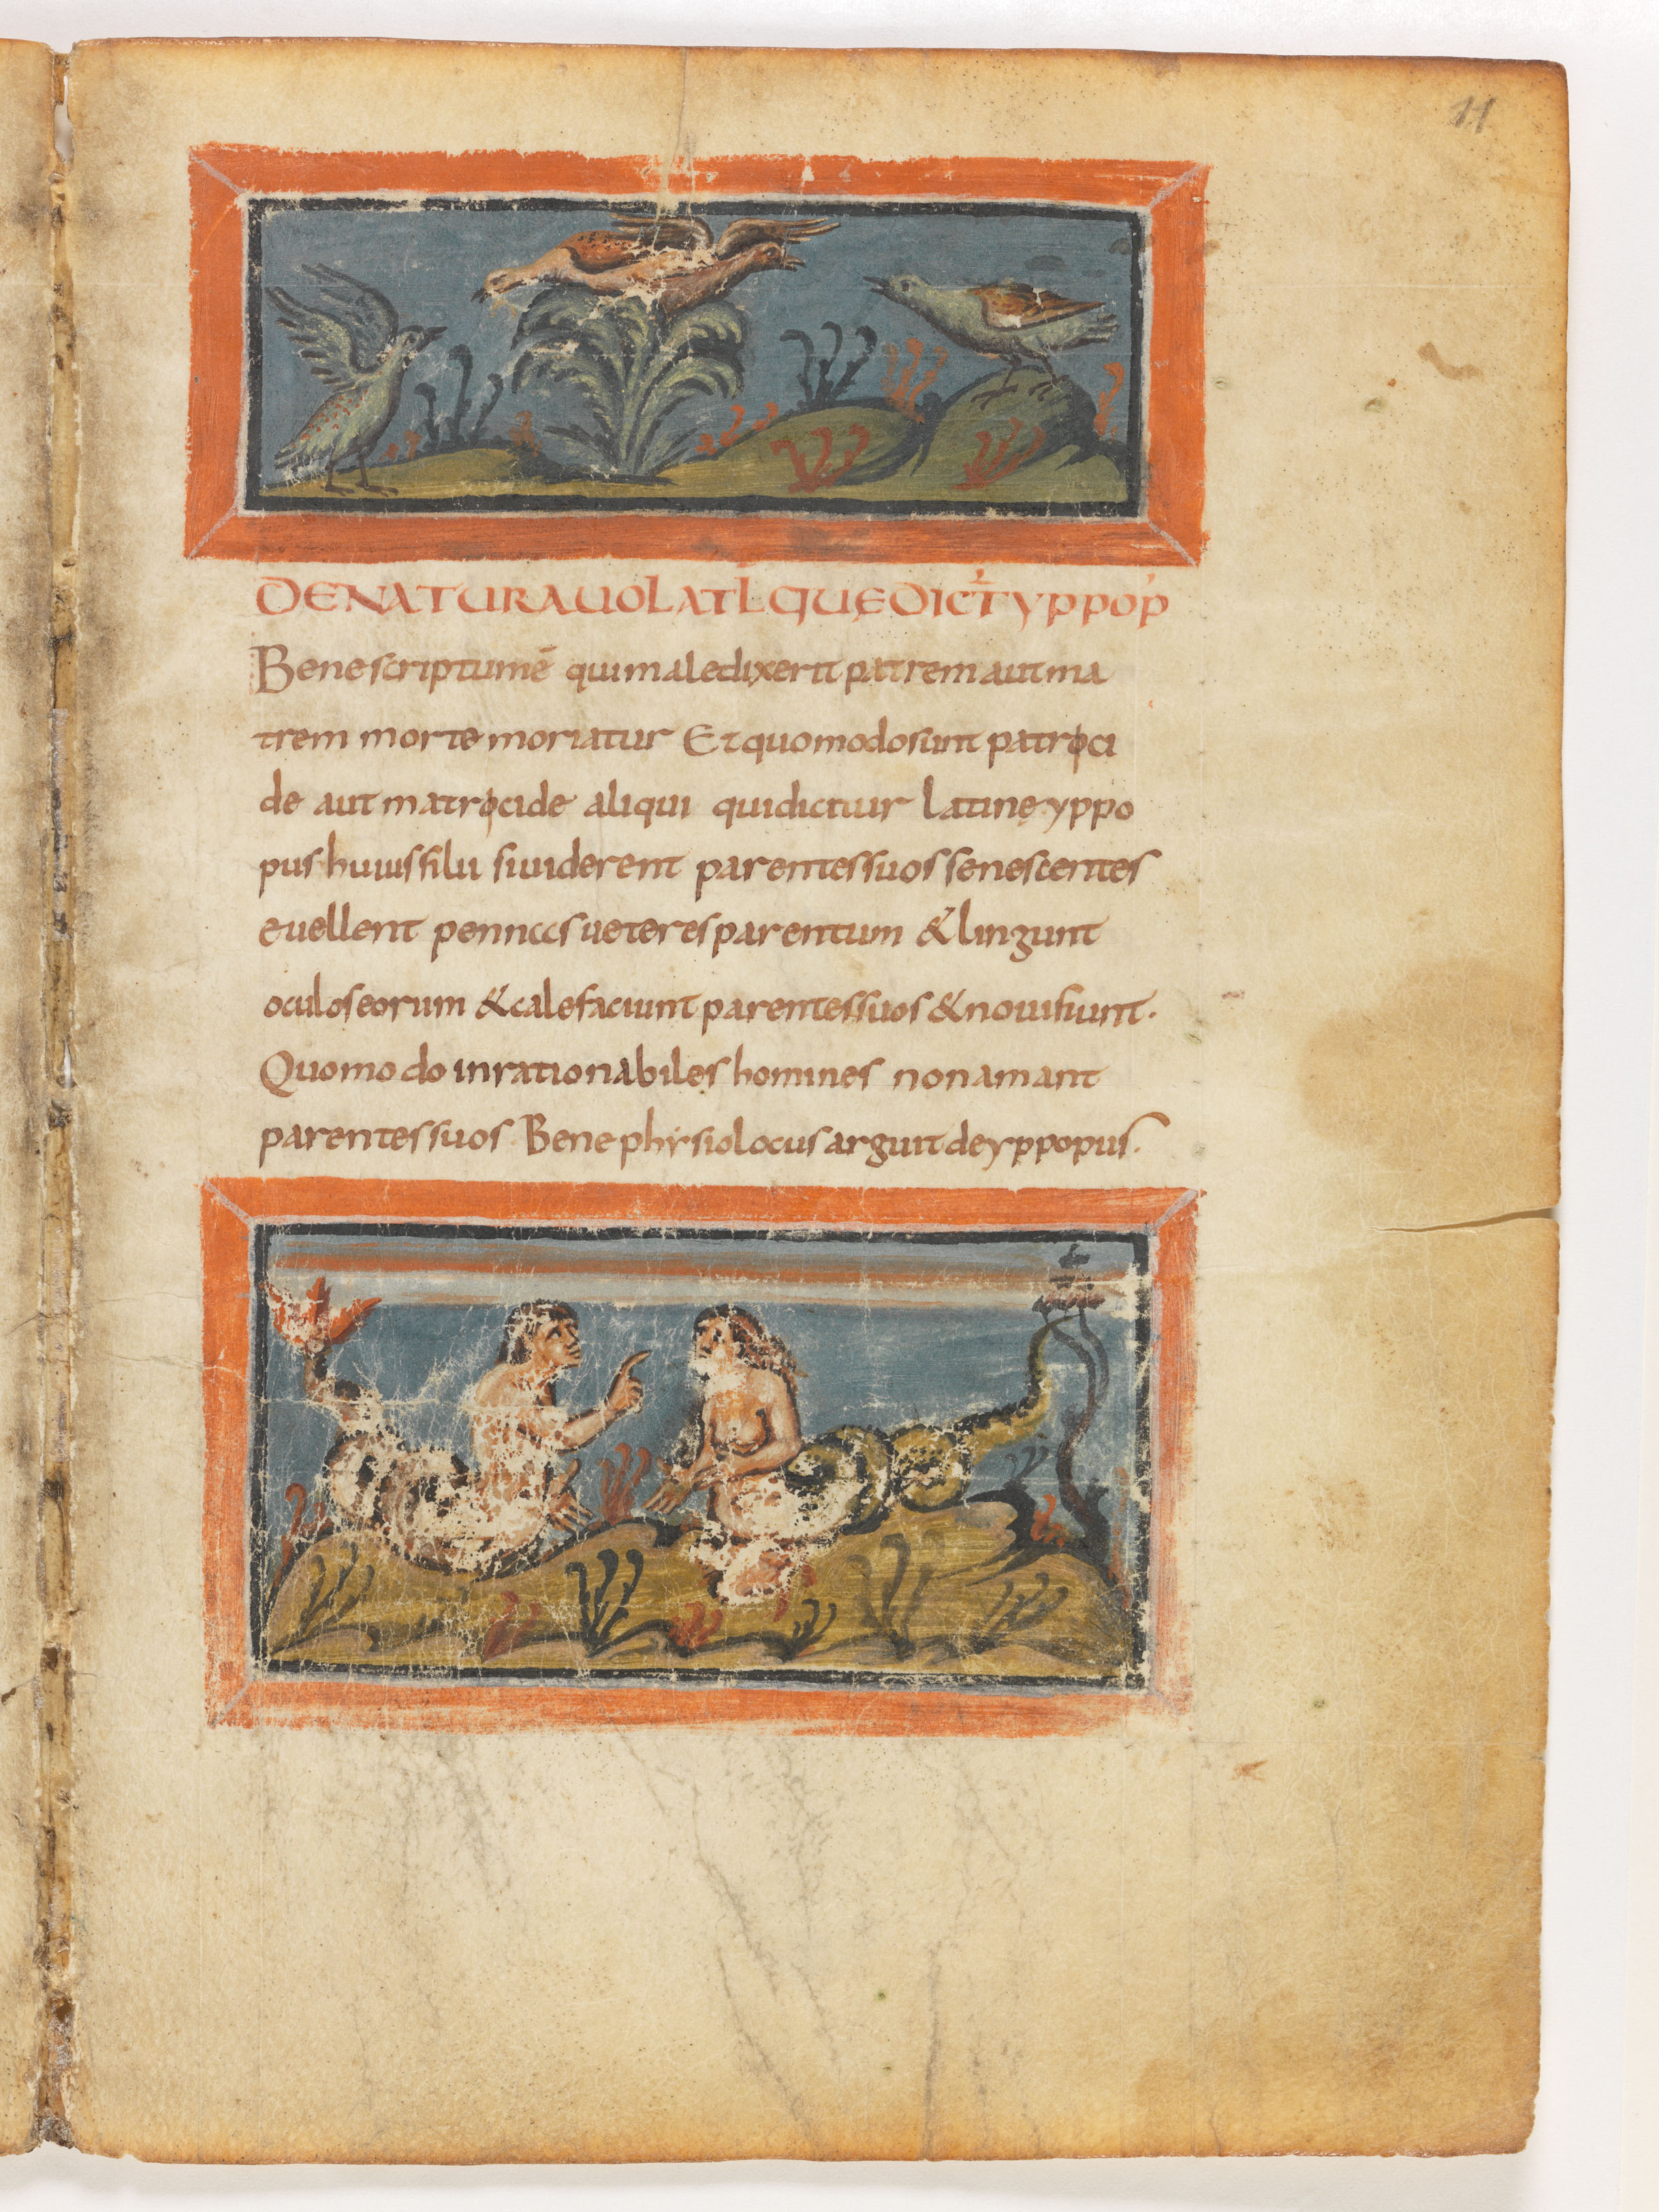 11
DE NATURA UOLATL QUĘ DICT̄ YPPOP
Bene scriptum ē qui maledixerit patrem aut ma
trem morte moriatur Et quomodo sunt patroci
de aut matrocide aliqui qui dictuir latinę yppo
pus · huius filii si uiderent parentes suos senescentes
euellent pennas ueteres parentum & lingunt
oculos eorum & calefaciunt parentes suos & noui fiunt ·
Quomodo inrationabiles homines non amant
parentes suos · Bene phẏsiolocus arguit de yppopus ·